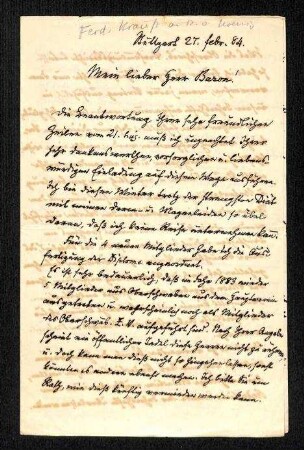 Ferd. Krauß an
Stuttgart 27. Febr. 84.
Mein lieber Herr Baron!
Die Beantwortung Ihrer sehr freundlichen
Zeilen vom 21. muß ich ungeachtet Ihrer
sehr dankenswerthen, vorsorglichen u. liebens
würdigen Einladung auf diesem Wege ausführen.
Ich bin diesen Winter trotz der strengsten Diät
mit meinem Darm- u. Magenleiden so übel
daran, daß ich keine Reise unternehmen kann.
Für die 4 neuen Mitglieder habe ich die Aus
fertigung der Diplome angeordnet.
Es ist sehr bedauerlich, daß im Jahr 1883 wieder
5 Mitglieder aus Oberschwaben aus dem
ausgetreten u. wahrscheinlich noch als Mitglieder
des Oberschwäb. Z. V. aufgeführt sind. Nach Herrn
scheint ein öffentlicher Tadel diese Herren nicht zu rühren
u. doch kann man dieß nicht so hingehen lassen, sonst
könnten es andere ebenso machen. Ich bitte Sie um
Rath, wie dieß künftig vermieden werden kann.